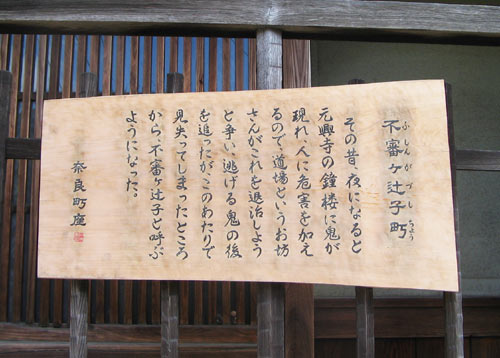 不審ヶ辻子町
ふしんがづし
ちょう
その昔、夜になると
元興寺の鐘楼に鬼が
現れ、人に危害を加え
るので、道場というお坊
さんがこれを退治しよう
と争い逃げる鬼の後
を追ったが、このあたりで
見失ってしまったところ
から、不審ヶ辻子と呼ぶ
ようになった。
奈良町座